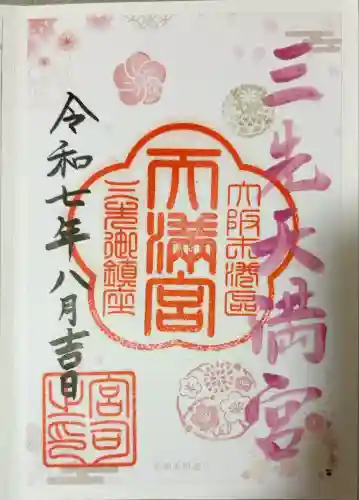 三先天満宮
大阪市港区
天満宮
三先御鎮座
令和七年八月吉日
宮司之印